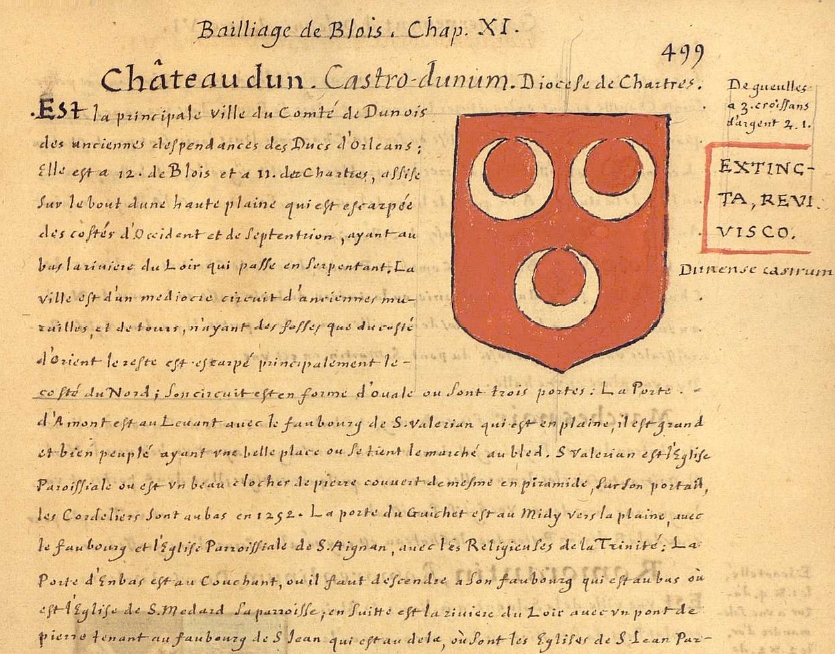 Bailliage de Blois. Chap. XI.
499
Châteaudun. Castro-dunum. Diocese de Chartres.
De gueulles
a 3. croissans
d'argent 2. 1.
EXTINC-
TA, REVI
VISCO.
Dunense castrum
.Est la principale ville du Comté de Dunois
des anciennes despendances des Ducs d'Orleans;
Elle est a 12. de Blois et a 11. de Chartres, assise
sur le bout dune haute plaine qui est escarpée
des costés d'Occident et de Septention, ayant au
bas la riviere du Loir qui passe en serpentant. La
ville est d'un mediocre circuit d'anciennes mu-
railles, et de tours, n'ayant des fosses que du costé
d'Orient le reste est escarpé principalement le-
costé du Nord; son circuit est en forme d'ouale ou sont trois portes: La Porte
d'Amont est au Levant avec le faubourg de S. Valerian qui est en plaine, il est grand
et bien peuplé ayant vne belle place ou se tient le marché au bled. S Valerian est l'Eglise
Paroissiale ou est vn beau clocher de pierre couvert de mesme en piramide, sur son portail,
les Cordeliers sont au bas en 1252. La porte du Guichet est au Midy vers la plaine, avec
le faubourg et l'Eglise Parroissiale de S. Aignan, avec les Religieuses de la Trinité; La
Porte d'Enbas est au Couchant, ou il faut descendre a son faubourg qui est au bas où
est l'Eglise de S. Medard sa parroisse; en suitte est la riviere du Loir avec vn pont de
pierre tenant au faubourg de S Jean qui est au dela, où sont les Eglises de S Jean Par-